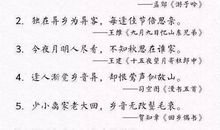 ——孟郊《游子吟》
2. 独在异乡为异客，每逢佳节倍思亲。
——王维《九月九日忆山东兄弟》
3. 今夜月明人尽看，不知秋思在谁家。
——王建《十五夜望月寄杜郎中》
4. 逢人渐觉乡音异，却恨莺声似故山。
——司空图《漫书五首》
5. 少小离家老大回，乡音无改鬓毛衰。
——贺知章《回乡偶书》